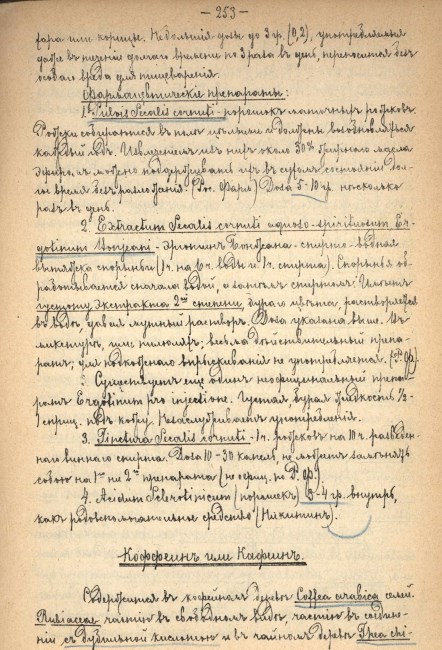 - 253 -
хара или корицы. Небольшія дозы до 3 гр. (0,2), употребляемыя
даже въ теченіи долгаго времени по 3 раза въ день, переносятся безъ
особаго вреда для пищеваренія.
Фармацевтические препараты:
1. Pulvis Secalis cornuti - порошокъ маточныхъ рожковъ.
Рожки собираются въ полѣ и должны возобновляться
каждый годъ. Извлеченіемъ изъ нихъ около 30% жирнаго масла
эфиромъ можно поддерживать ихъ въ сухомъ состояніи дол-
гое время безъ разложенія. (Рос. Фарм.) Доза 5-10 гр. нѣсколько
разъ въ день.
2. Extractum Secalis cornuti aquoso-spirituosum Er-
gotinum Bonjeani - Эрготинъ Бонжана - спиртно-водная
вытяжка спорыньи (1 ч. на 6 ч. воды и 1 ч. спирта). Спорынья об-
работывается сначала водой, а затѣмъ спиртомъ.
густому экстракта 2ой степени, бураго цвѣта, растворяется
въ водѣ, давая мутный растворъ. Доза указана выше. Въ
микстурѣ, или пилюляхъ; весьма дѣйствительный препа-
ратъ; для подкожнаго впрыскиванія не употребляется. (Р. Ф.)
Существуетъ еще одинъ неофицинальный препа-
ратъ Ergotinum pro injectione. Густая, бурая жидкость 1/2-
1 шприц. подъ кожу. Незаслуживаетъ употребленія.
3. Tinctura Secalis cornuti - 1 ч. рожковъ на 10 ч. разведен-
наго виннаго спирта. Доза 10-30 капель, не можетъ замѣнять
собою на 1ый ни 2ой препарата (не офиц. по Р. Ф.)
4. Acidum Sclerotinicum (порошокъ) 3-4 гр. внутрь,
какъ родовспомогательное средство (Никитинъ).
Коффеинъ или Кафеинъ.
Содержится въ кофейномъ деревѣ Coffea arabica семей.
Rubiaceae частію въ свободномъ видѣ, частію въ соедине-
ніи съ дубильной кислотою и въ чайномъ деревѣ Thea chi-